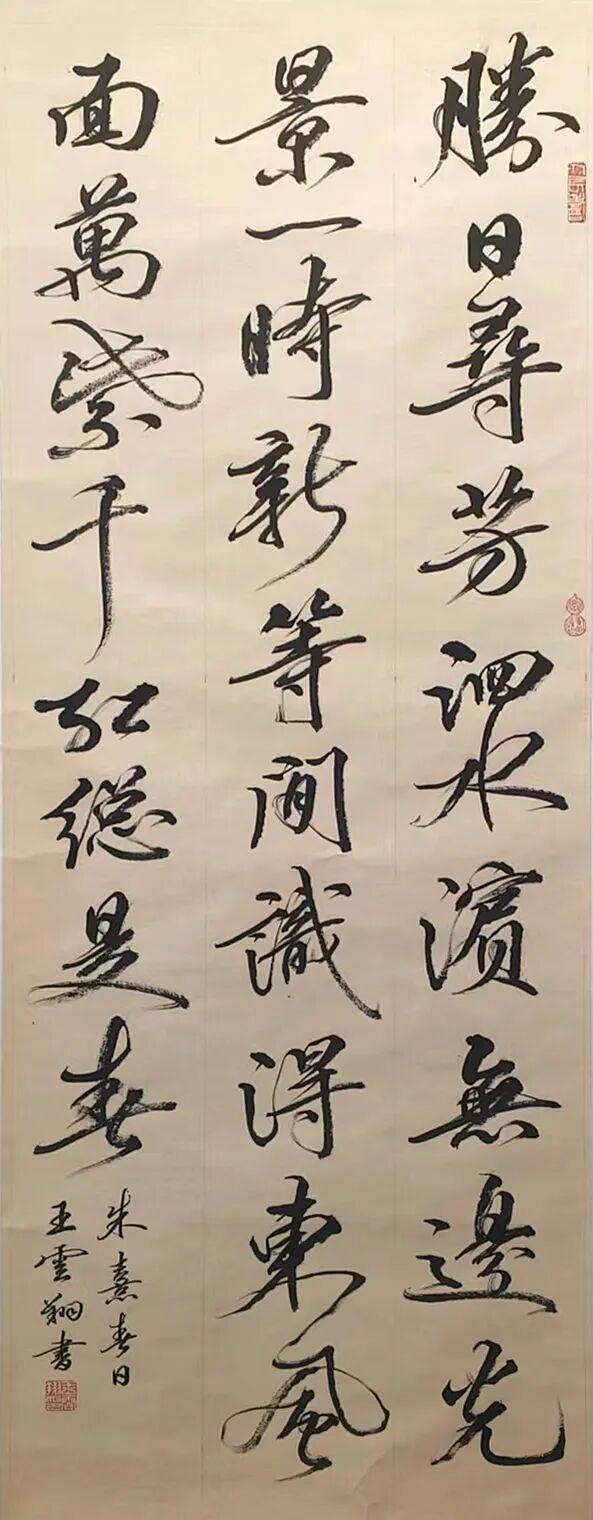 勝日尋芳泗水濱無邊光
景一時新等閒識得東風
面萬紫千紅總是春
朱熹春日
王雲翔書